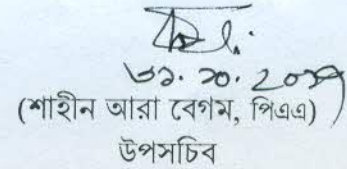 ৩১.১০.২০১৯
(শাহীন আরা বেগম, পিএএ)
উপসচিব